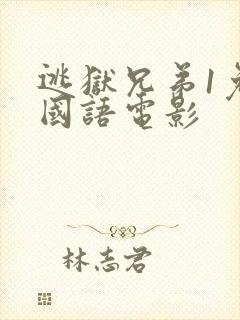 逃獄兄弟1免
國語電影
林志君